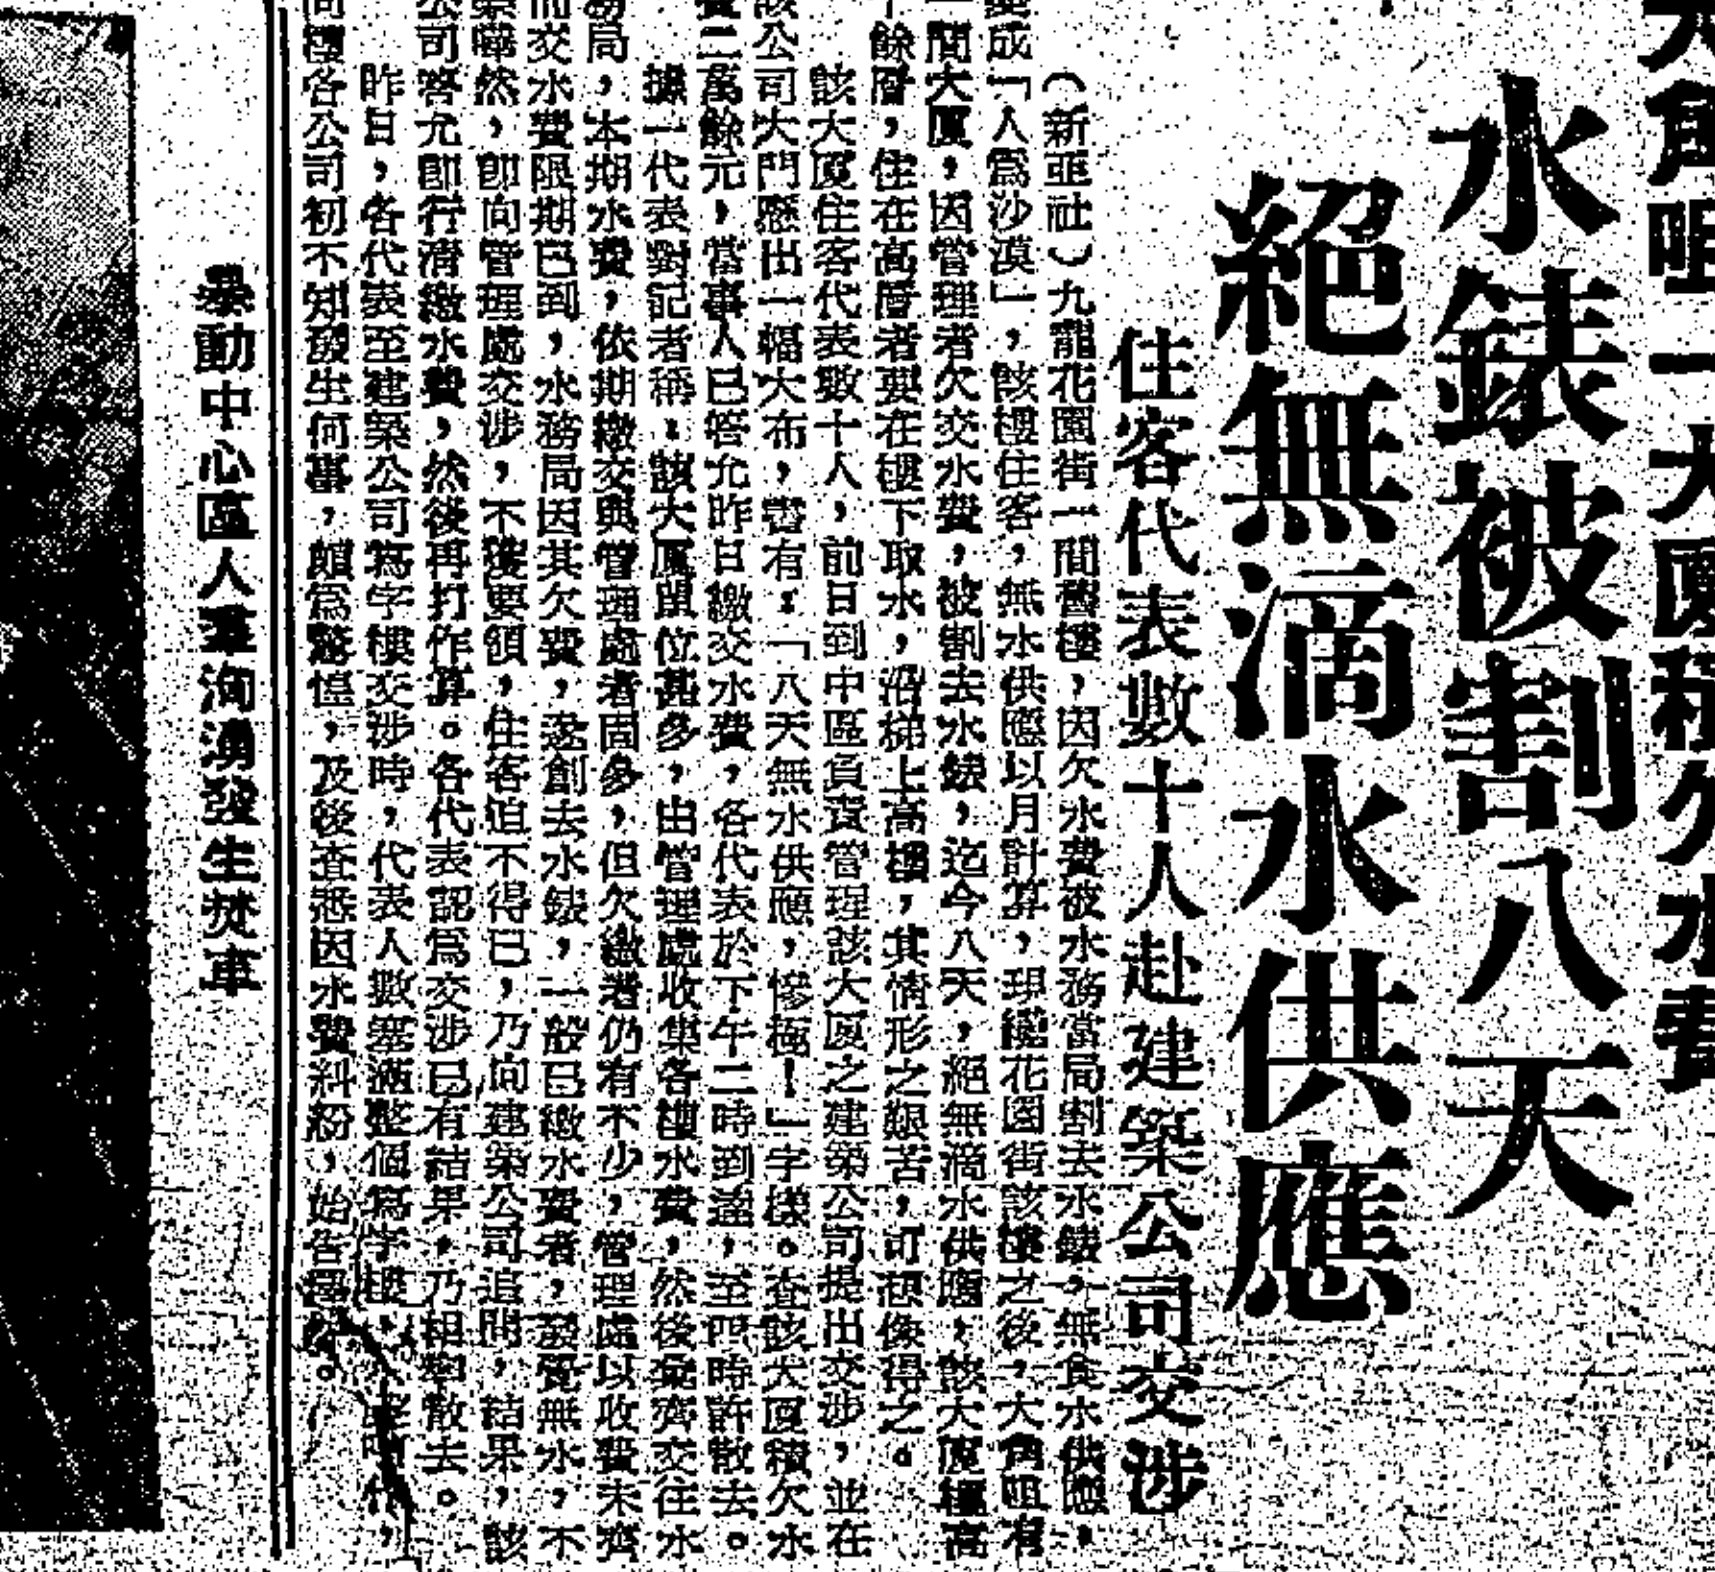 大角咀一大廈積欠水費
水錶被割八天
絕無滴水供應
住客代表數十人赴建築公司交涉
（新亞社）九龍花園街一間舊樓，因欠水費被水務當局割去水錶，無食水供應，
變成「人為沙漠」，該樓住客，無水供應以月計算，現繼花園街該樓之後，大角咀有
一間大廈，因管理者欠交水費，被割去水錶，迄今八天，絕無滴水供應，該大廈樓高
十餘層，住在高層者要在樓下取水，沿梯上高樓，其情形之艱苦，可想像得之。
該大廈住客代表數十人，前日到中區負責管理該大廈之建築公司提出交涉，並在
該公司大門懸出一幅大布，書有：「八天無水供應，慘極！」字樣。查該大廈積欠水
費二萬餘元，當事人已答允昨日繳交水費，各代表於下午二時到達，至四時許散去。
據一代表對記者稱：該大廈單位甚多，由管理處收集各樓水費，然後彙齊交往水
務局，本期水費，依期繳交與管理處者固多，但欠繳者仍有不少，管理處以收費未齊
而交水費限期已到，水務局因其欠費，遂割去水錶，一般已繳水費者，發覺無水，不
禁嘩然，即向管理處交涉，不獲要領，住客迫不得已，乃向建築公司追問，結果，該
公司答允即行清繳水費，然後再打作算。各代表認為交涉已有結果，乃相率散去。
昨日，各代表至建築公司寫字樓交涉時，代表人數塞滿整個寫字樓，
同樓各公司初不知發生何事，頗為驚惶，及後查悉因水費糾紛，始告
暴動中心區人羣洶湧發生焚車